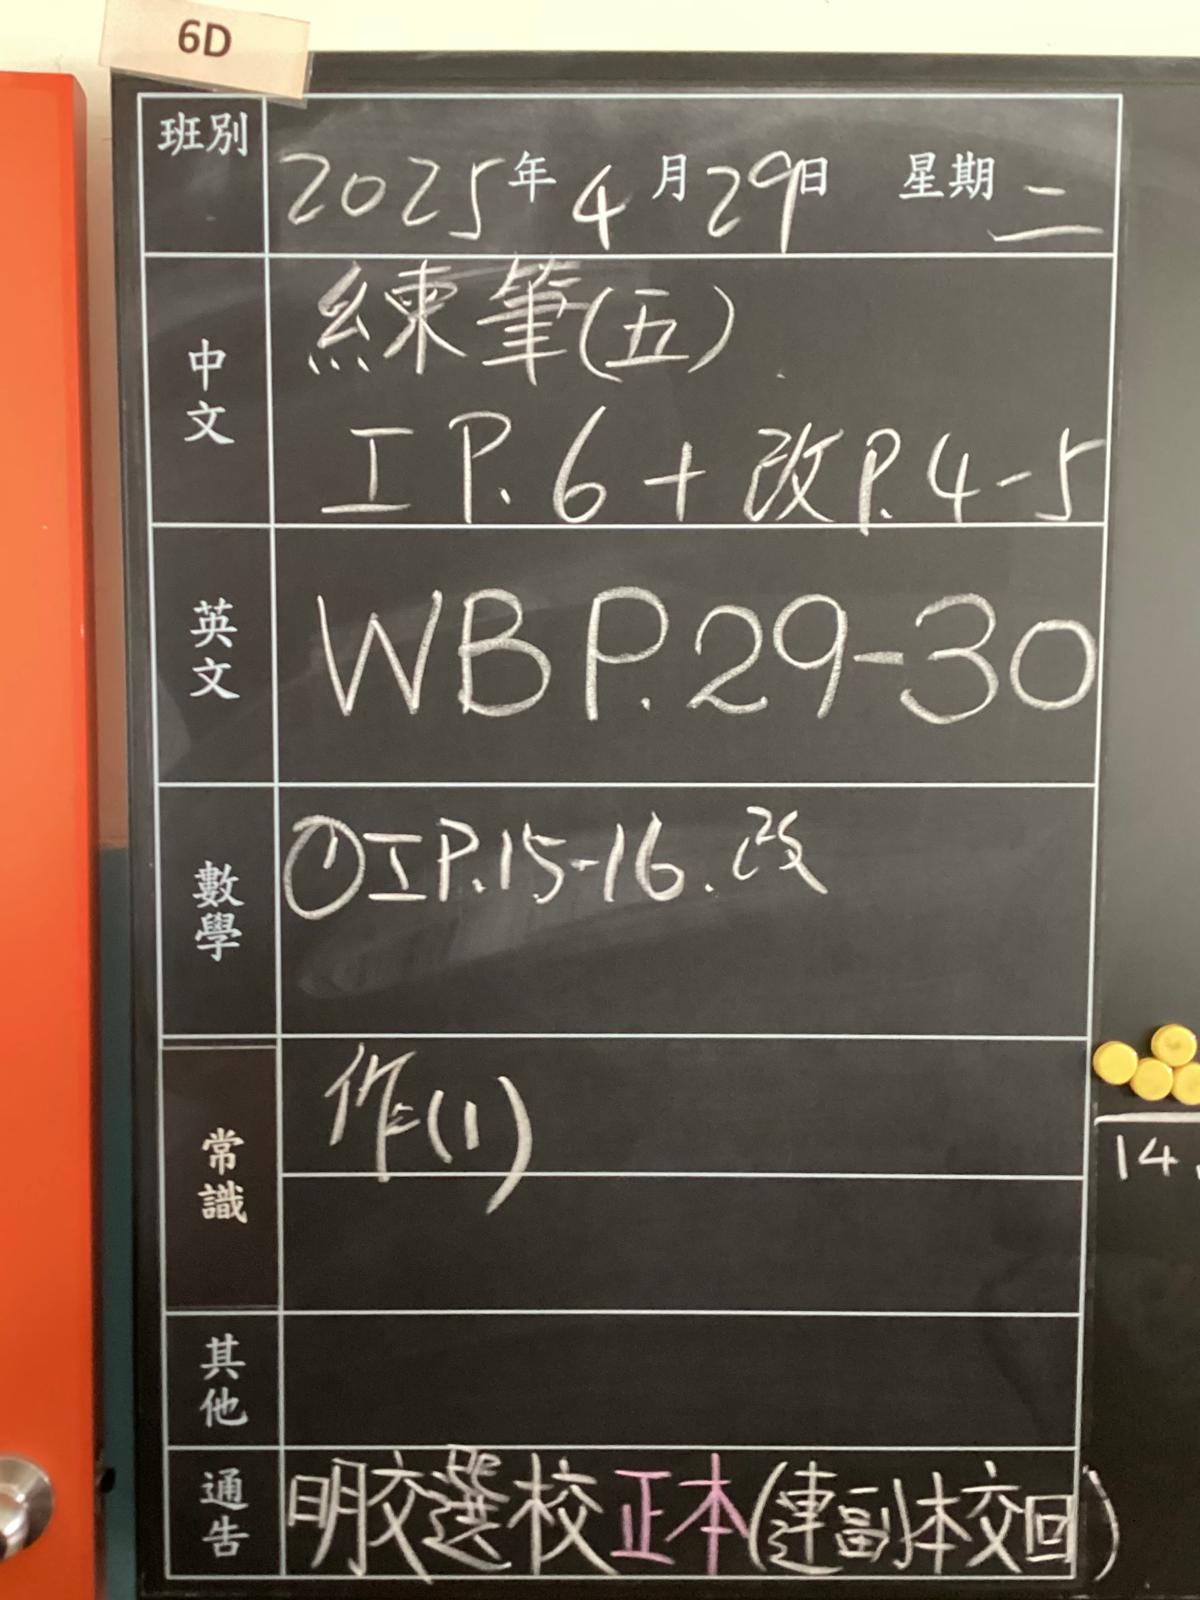 6D
班別
2025年4月29日 星期二
中文
練筆(五)
工P.6+改P.4-5
英文
WB P.29-30
數學
①工P.15-16.改
常識
作(1)
其他
通告
明交選校正本(連副本交回)
14.